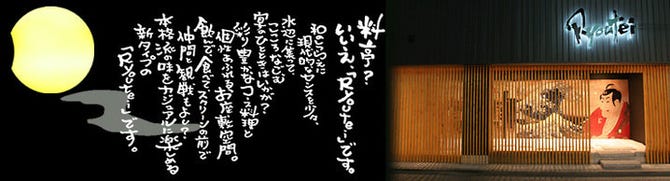 料亭?
いいえ、「Ryotei」です。
和のこころに
現代的なセンスをトッピング。
水辺に集って、
こころなごむ
宴のひとときはいかが?
彩り豊かなコース料理と
個性あふれるお座敷空間。
飲んで、食べて、スクリーンの前で
仲間と観戦もよし?
本格派の味をカジュアルに楽しめる
新タイプの
「Ryotei」です。
Ryoutei